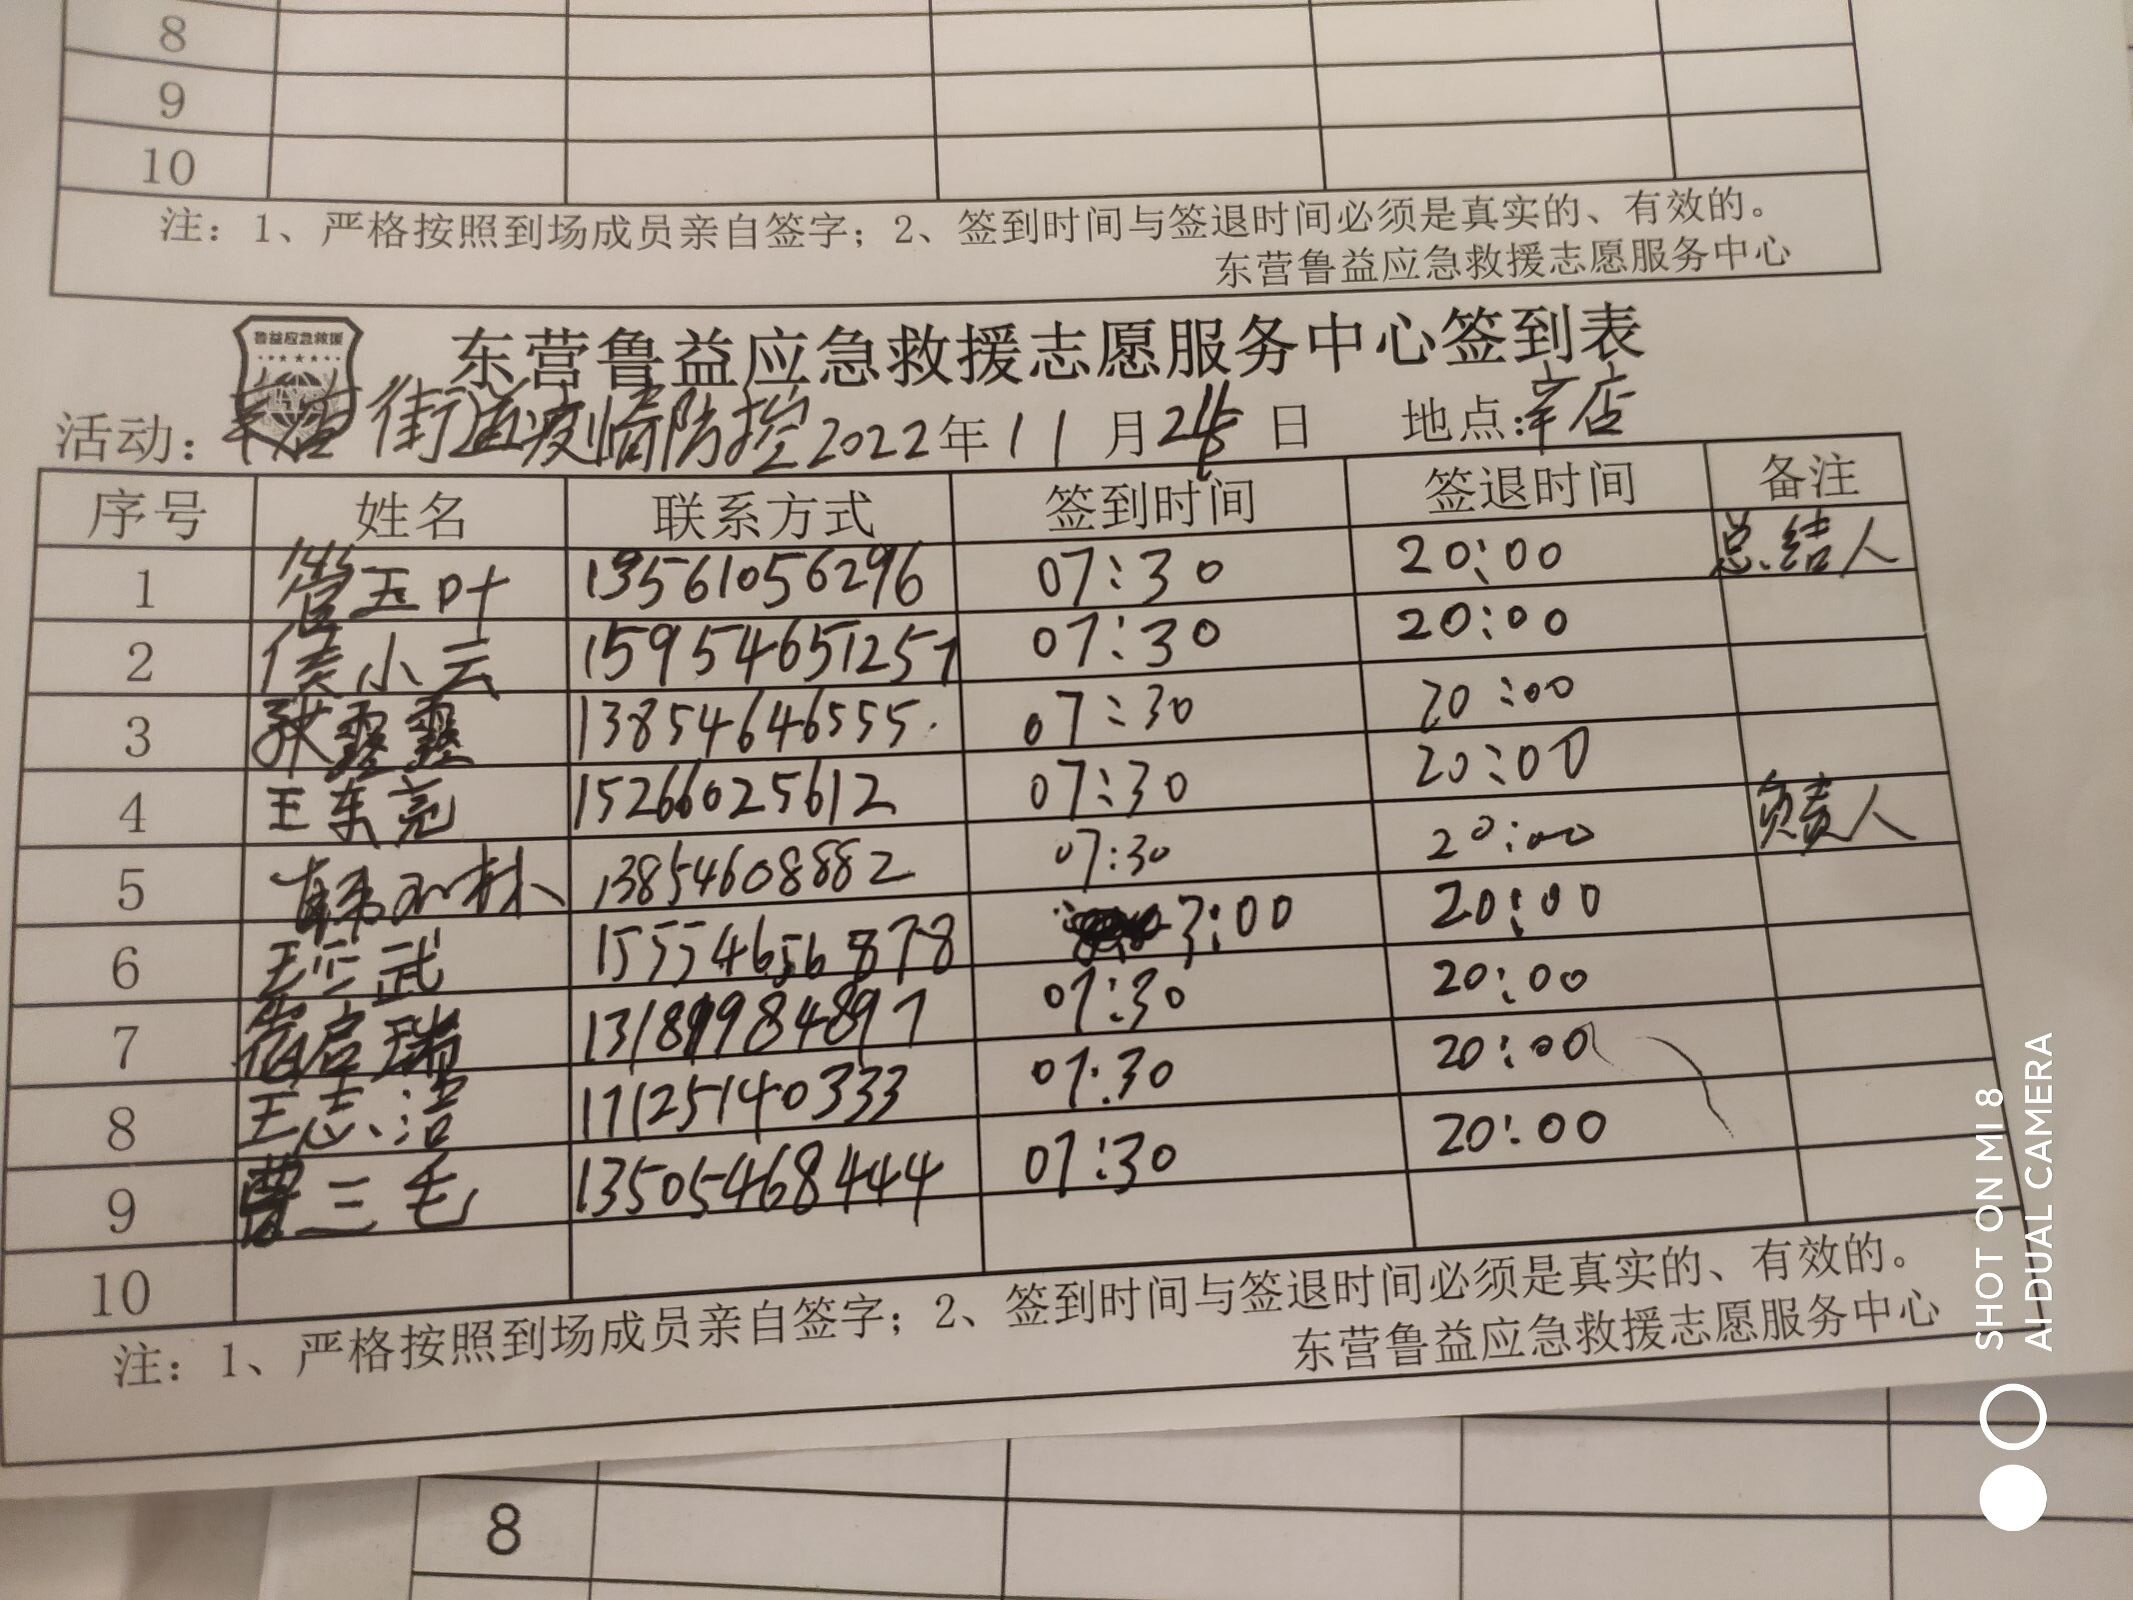 8
9
10
注：1、严格按照到场成员亲自签字；2、签到时间与签退时间必须是真实的、有效的。
东营鲁益应急救援志愿服务中心
鲁益应急救援
东营鲁益应急救援志愿服务中心签到表
活动：辛店街道疫情防控 2022年11月 日 地点：辛店
序号 姓名 联系方式 签到时间 签退时间 备注
1 管玉叶 13561056296 07:30 20:00 总结人
2 侯小云 15954651257 07:30 20:00
3 张鑫鑫 13854646555 07:30 20:00
4 王东亮 15266025612 07:30 20:00 负责人
5 韩 林 13854608882 07:30 20:00
6 王 武 15554656878 7:00 20:00
7 宿启瑞 13189984897 07:30 20:00
8 王志洁 17125140333 07:30 20:00
9 曹三毛 13505468444 07:30 20:00
10
注：1、严格按照到场成员亲自签字；2、签到时间与签退时间必须是真实的、有效的。
东营鲁益应急救援志愿服务中心
8
SHOT ON MI 8
AI DUAL CAMERA